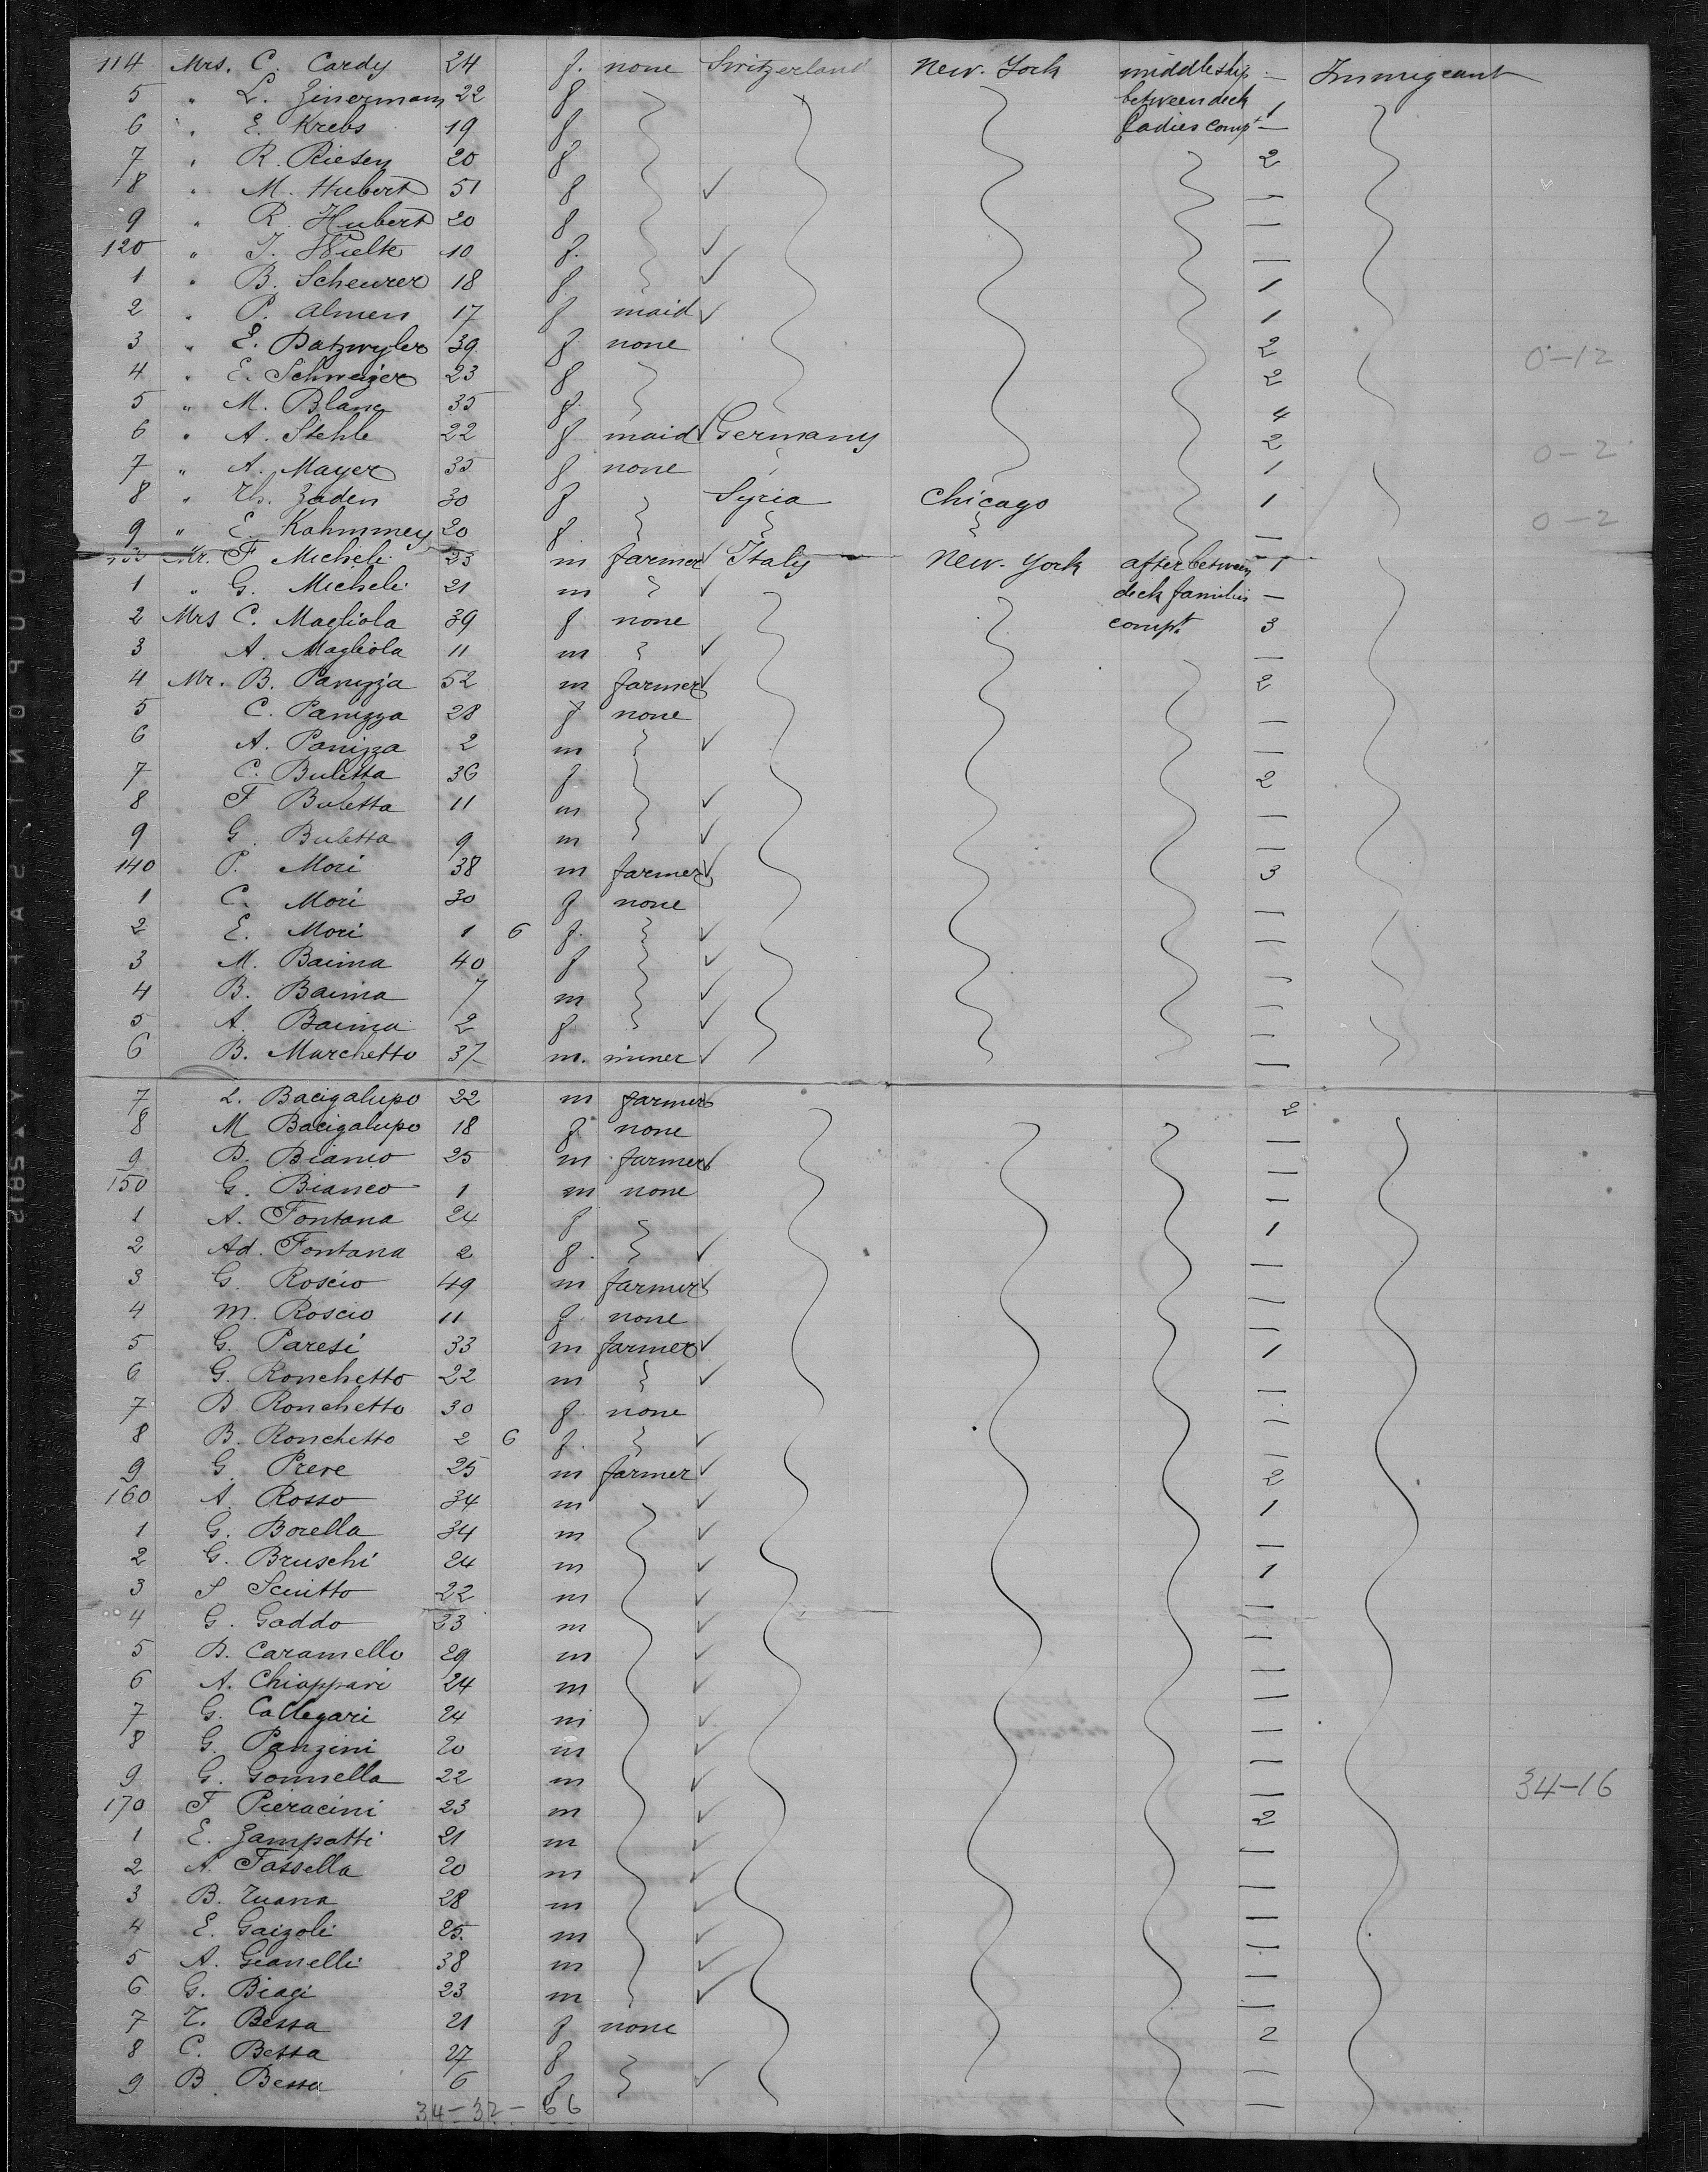 114 Mrs. C. Cardy 24 f. none Switzerland New-York middleship — Immigrant
5 " L. Zinermann 22 f between deck 1
6 " E. Krebs 19 f Ladies compt —
7 " R. Riesen 20 f 2
8 " M. Hubert 51 f ✓ —
9 " R. Hubert 20 f —
120 " J. 10 f. ✓ —
1 " B. Scheurer 18 f ✓ 1
2 " P. Almen 17 f maid ✓ 1
3 " E. Batzwyler 39 f none 2 0-12
4 " E. Schweizer 23 f 2
5 " M. Blanc 35 f. 4
6 " A. Stehle 22 f maid ✓ Germany 2 0-2
7 " A. Mayer 35 f none 1
8 " Th. Zaden 30 f Syria Chicago 1
9 " E. Kahmmey 20 f — 0-2
130 Mr. F Micheli 23 m farmer ✓ Italy New-York after between 1
1 " G. Micheli 21 m ✓ deck families —
2 Mrs C. Magliola 39 f none compt. 3
3 A. Magliola 11 m ✓ —
4 Mr. B. Panizza 52 m farmer ✓ 2
5 C. Panizza 28 f none —
6 A. Panizza 2 m ✓ —
7 C. Buletta 36 f 2
8 F Buletta 11 m ✓ —
9 G. Buletta 9 m ✓ —
140 P. Mori 38 m farmer ✓ 3
1 C. Mori 30 f none —
2 E. Mori 1 6 f. ✓ —
3 M. Baima 40 f ✓ —
4 B. Baima 7 m ✓ —
5 A. Baima 2 f ✓ —
6 B. Marchetto 37 m. miner ✓ —
7 L. Bacigalupo 22 m farmer 2
8 M Bacigalupo 18 f none —
9 B. Bianco 25 m farmer ✓ —
150 G. Bianco 1 m none —
1 A. Fontana 24 f 1
2 Ad. Fontana 2 f. ✓ —
3 G. Roscio 49 m farmer ✓ —
4 M. Roscio 11 f none —
5 G. Paresi 33 m farmer ✓ 1
6 G. Ronchetto 22 m ✓ —
7 D. Ronchetto 30 f none —
8 B. Ronchetto 2 6 f. ✓ —
9 G. Preve 25 m farmer ✓ 2
160 A. Rosso 34 m ✓ 1
1 G. Borella 34 m ✓ —
2 G. Bruschi 24 m ✓ 1
3 S Sciutto 22 m ✓ —
4 G. Gaddo 23 m ✓ —
5 D. Caramello 29 m ✓ —
6 A. Chiappari 24 m ✓ —
7 G. Callegari 24 m ✓ —
8 G. Panzini 20 m ✓ —
9 G. Gonnella 22 m ✓ — 34-16
170 F Pieracini 23 m ✓ 2
1 E. Zampatti 21 m ✓ —
2 A. Fassella 20 m ✓ —
3 B. 28 m ✓ —
4 E. Gaizoli 25. m ✓ —
5 A. Gianelli 38 m ✓ —
6 G. Biagi 23 m ✓ —
7 T. Bessa 21 f none 2
8 C. Bessa 27 f —
9 B. Bessa 6 f ✓ —
34-32-66